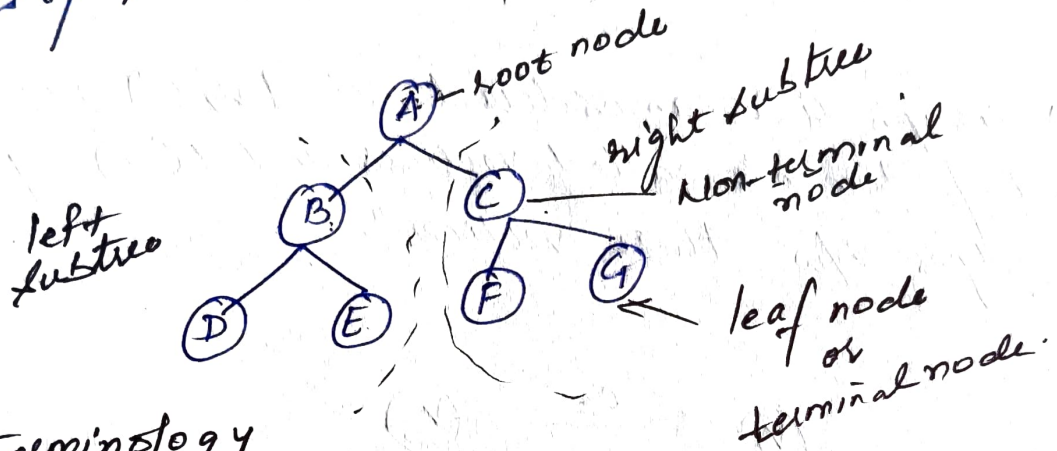 A root node
right subtree
B C Non-terminal
node
left
subtree
D E F G
leaf node
or
terminal node.
Terminology